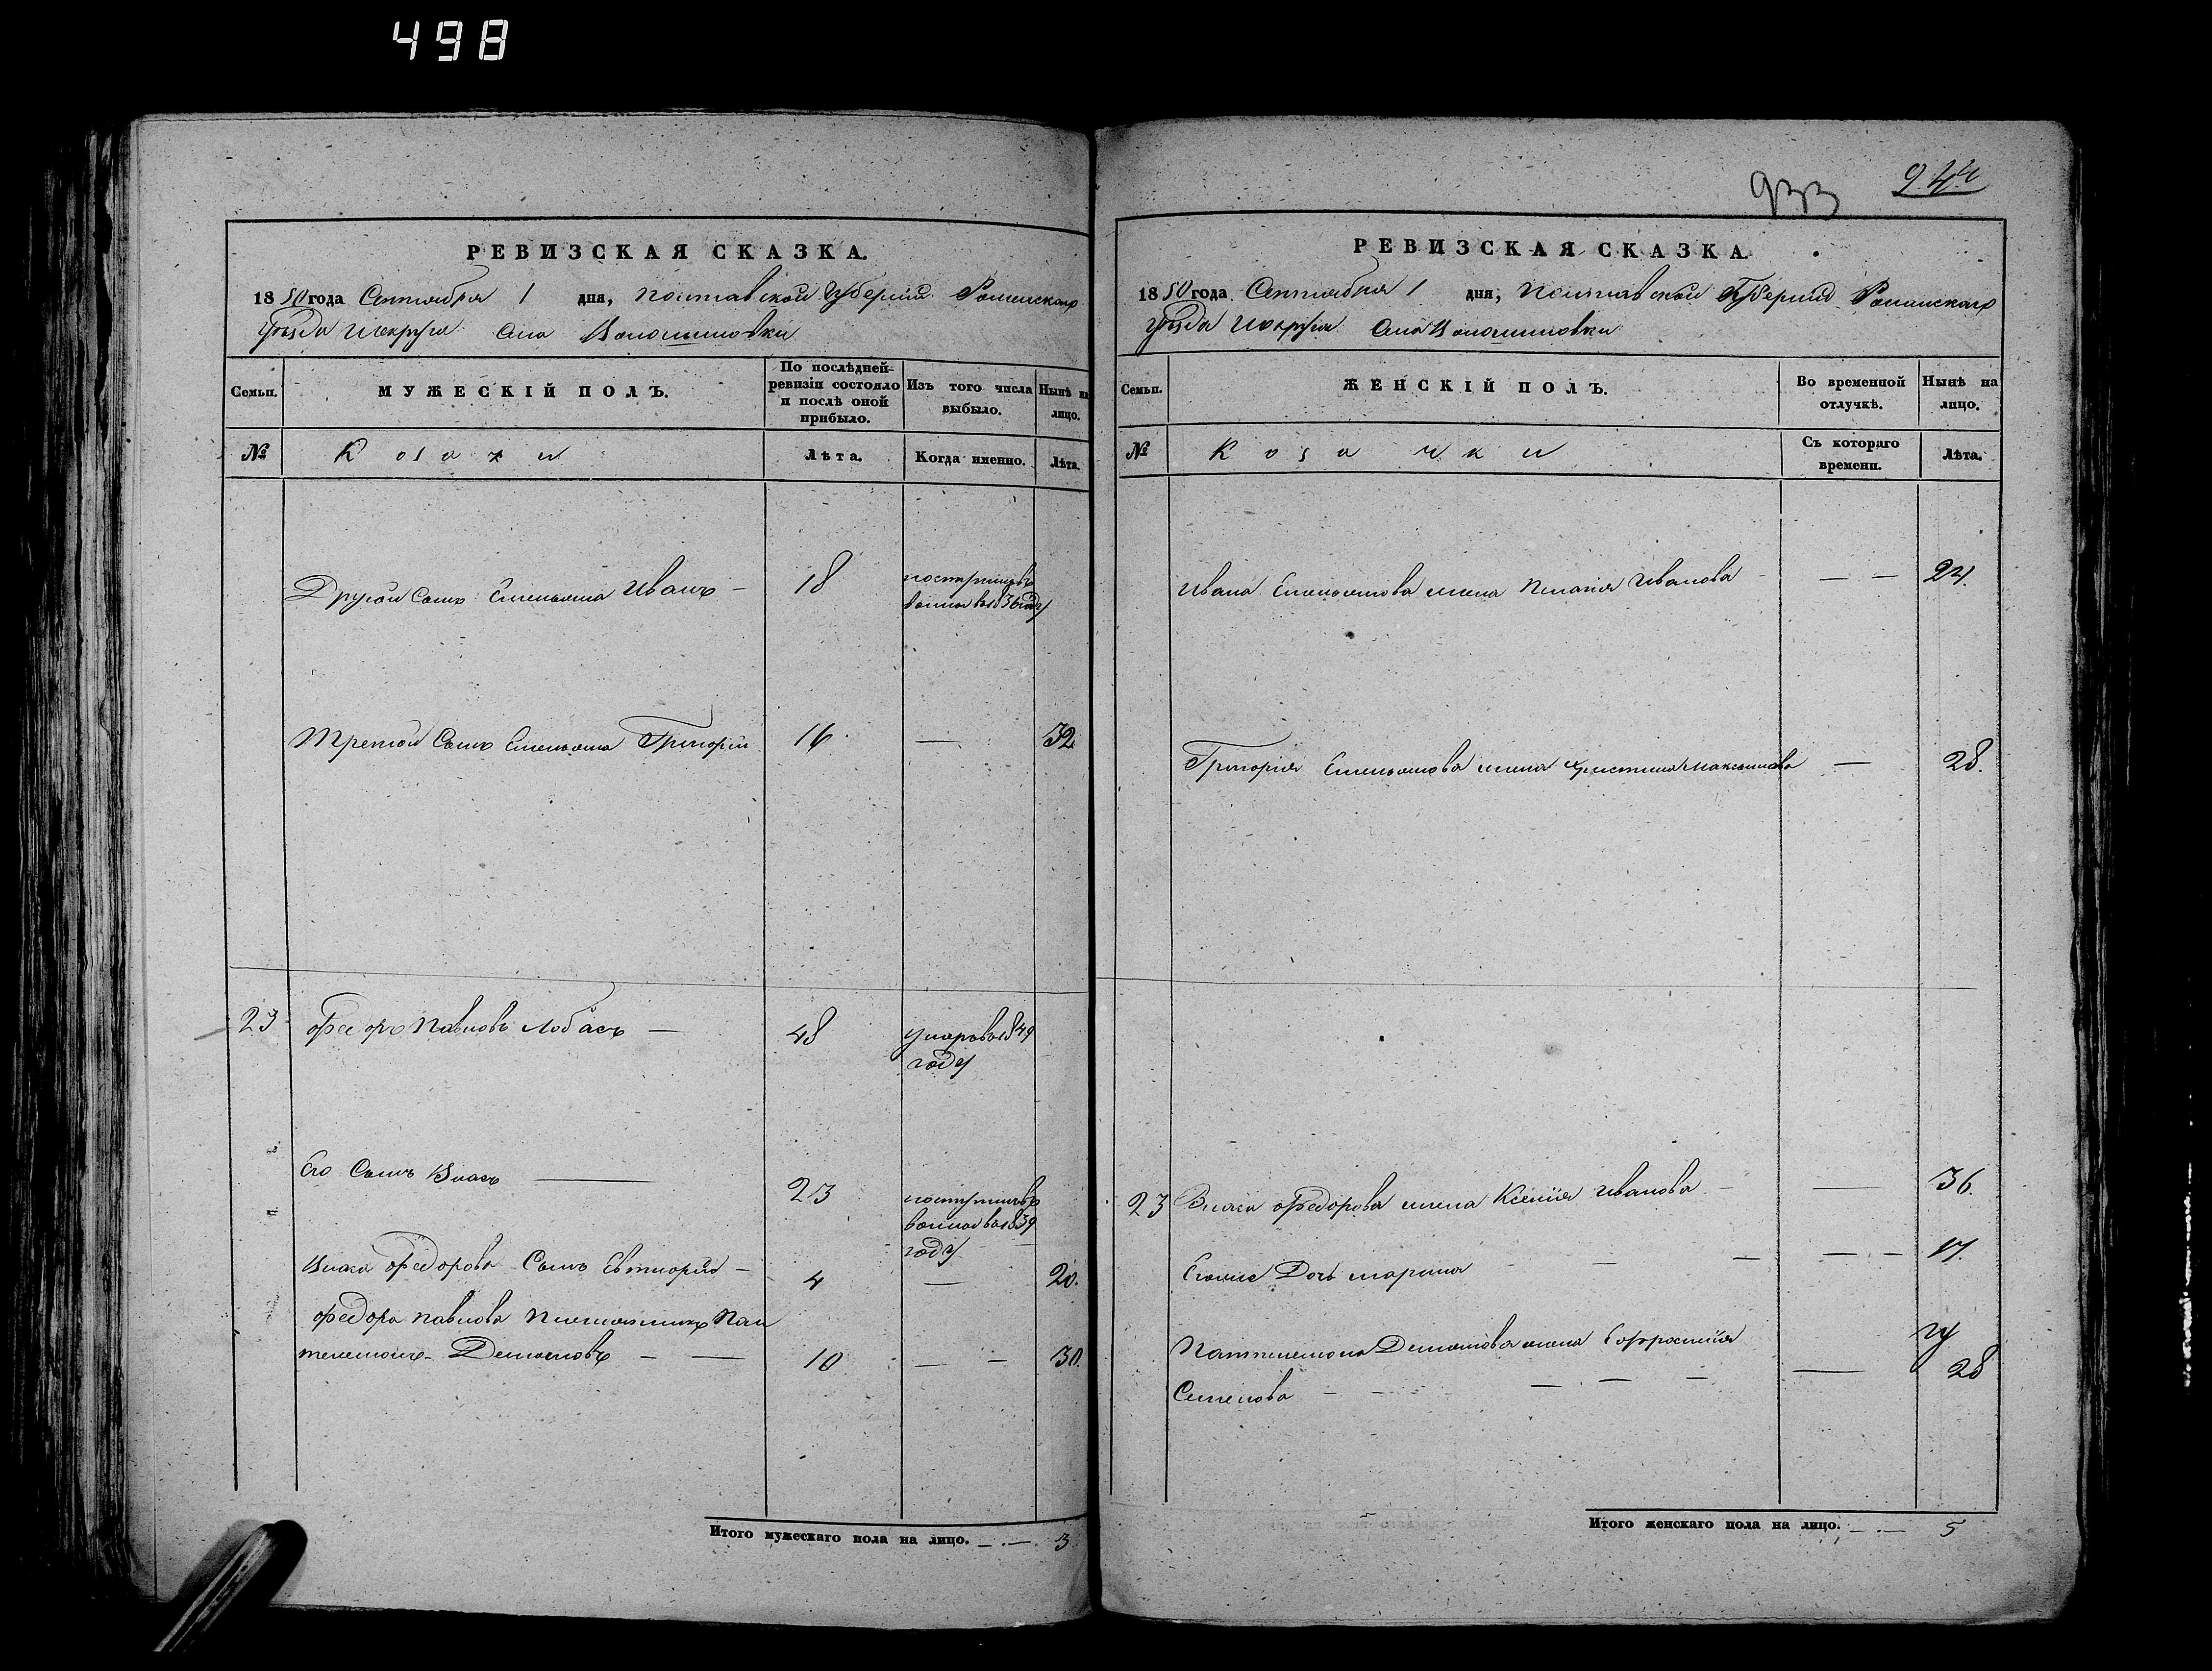 498
933
244
РЕВИЗСКАЯ СКАЗКА.
1850 года Сентября 1 дня, Полтавской Губернии Роменскаго
уѣзда и округа Села Волошиновки
Семьи.
МУЖЕСКІЙ ПОЛЪ.
По послѣдней
ревизіи состояло
и послѣ оной
прибыло.
Изъ того числа
выбыло.
Нынѣ на
лицо.
№
Козаки
Лѣта.
Когда именно.
Лѣта.
Другой Сынъ Емельяна Иванъ — 18 поступилъ
воинов 1836 году
Третій Сынъ Емельяна Григорій 16 — 32
23 Федоръ Павловъ Лобасъ — 48 умеръ в 1849
году
Его Сынъ Власъ — 23 поступилъ
воинов 1839
году
Власа Федорова Сынъ Евтихій — 4 — 20.
Федора Павлова Племянникъ Пан
телемонъ Демьяновъ — — 10 — — 30.
Итого мужескаго пола на лицо. — 3
РЕВИЗСКАЯ СКАЗКА.
1850 года Сентября 1 дня, Полтавской Губернии Роменскаго
уѣзда и округа Села Волошиновки
Семьи.
ЖЕНСКІЙ ПОЛЪ.
Во временной
отлучкѣ.
Нынѣ на
лицо.
№
Козачки
Съ котораго
времени.
Лѣта.
Ивана Емельянова жена Пелагія Иванова — — 24.
Григорія Емельянова жена Христина Максимова — 28.
23 Власа Федорова жена Ксенія Иванова — 36.
Его же Дочь Марина — — — 17.
Пантелемона Демьянова жена Ефросинія
Семенова — — — 28
Итого женскаго пола на лицо. — 5